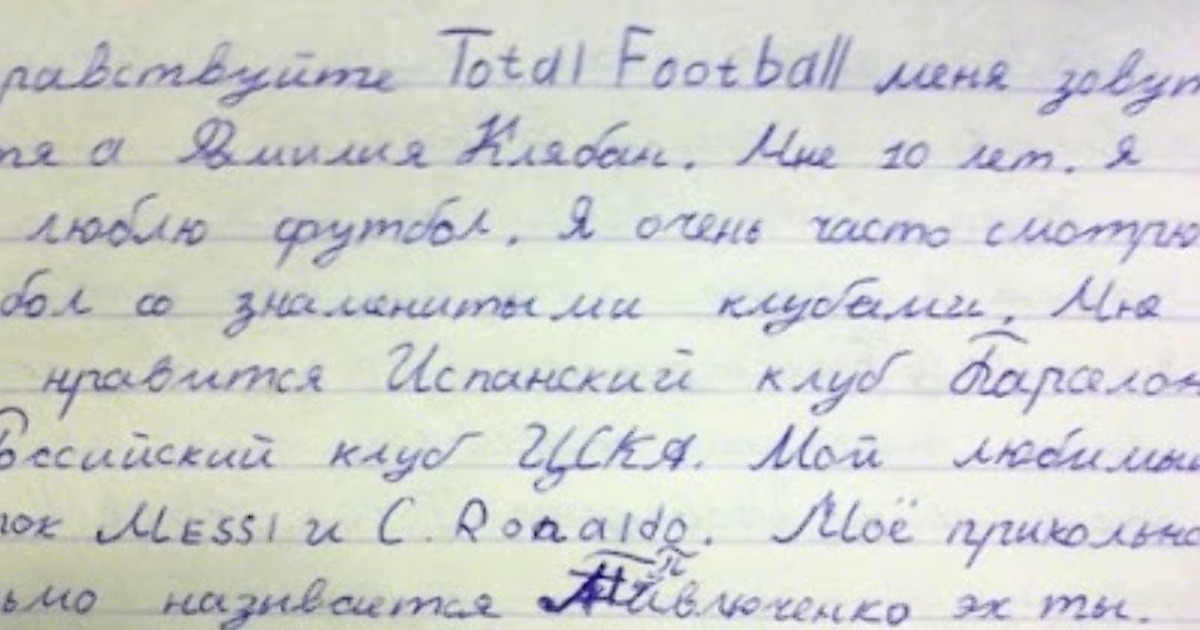 равствуйте Total Football меня зовут
тя а Фамилия Клябан. Мне 10 лет. Я
люблю футбол. Я очень часто смотрю
бол со знаменитыми клубами. Мне
нравится Испанский клуб Барселон
Российский клуб ЦСКА. Мой любимый
рок MESSI и C. Ronaldo. Моё прикольно
ьмо называется Павлюченко эх ты.